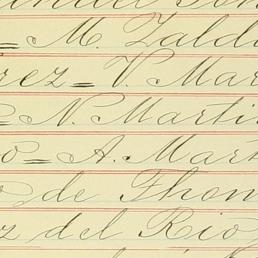 = M. Zald
rez = V. Mar
= N. Marti
o = A. Mart
de Thom
z del Rio